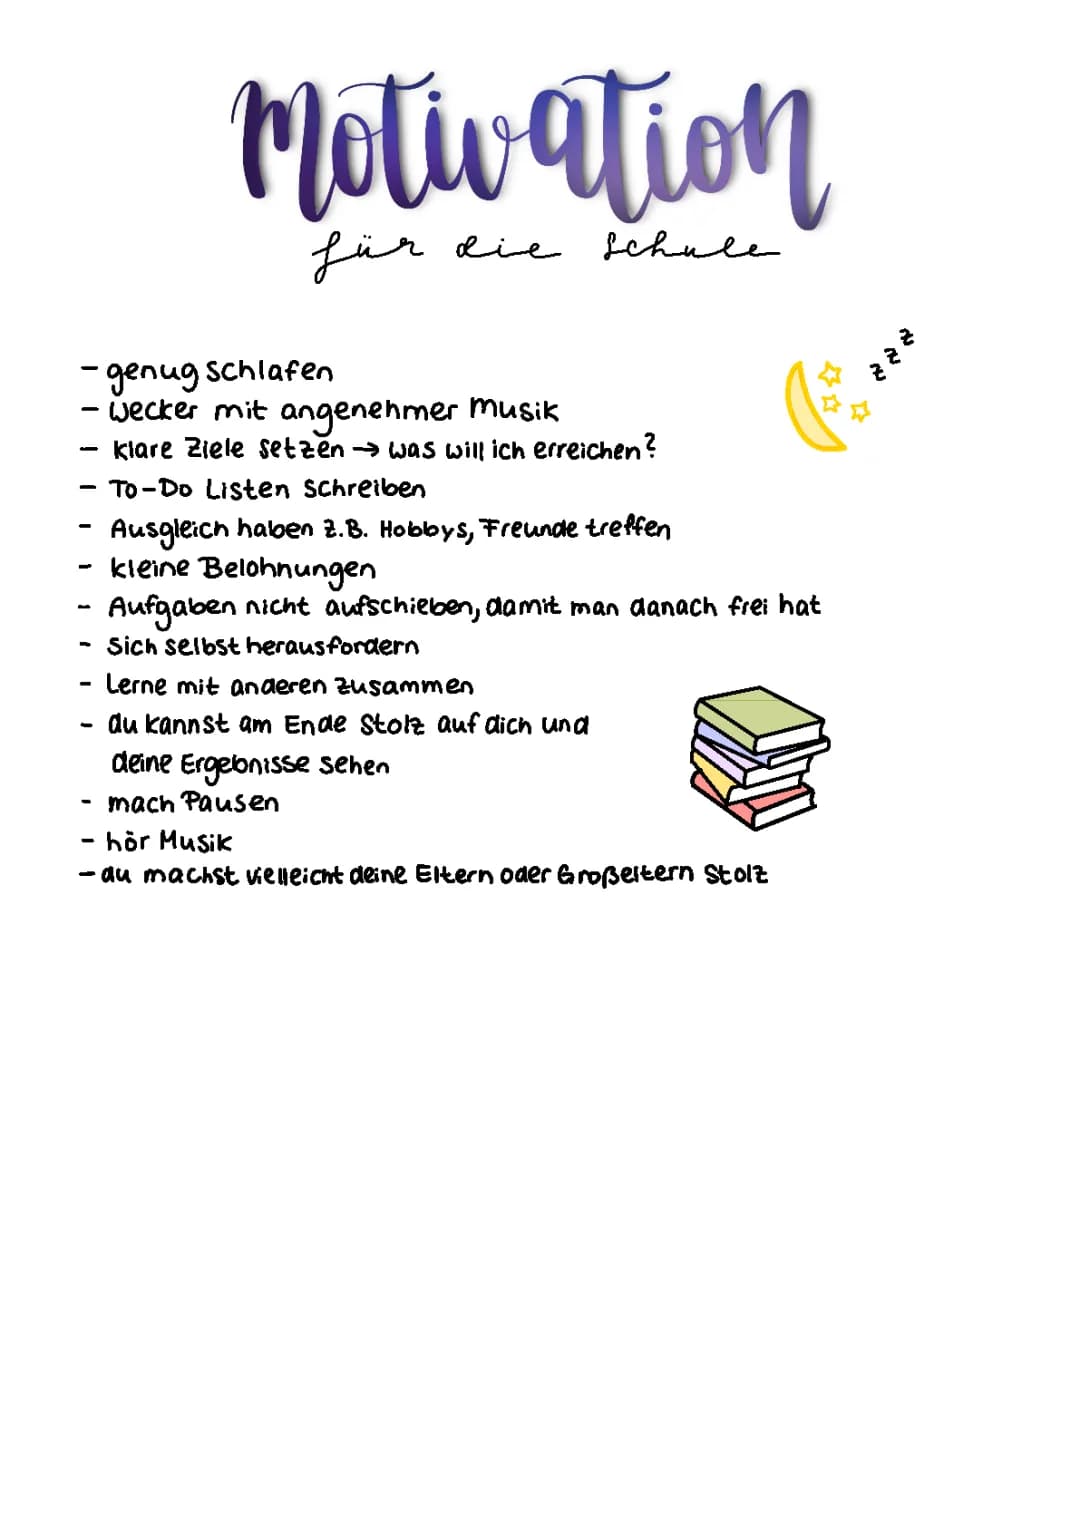 Motivation
für die Schule
z z z
- genug schlafen
- Wecker mit angenehmer Musik
- Klare Ziele setzen → was will ich erreichen?
- To-Do Listen schreiben
- Ausgleich haben z.B. Hobbys, Freunde treffen
- kleine Belohnungen
- Aufgaben nicht aufschieben, damit man danach frei hat
- Sich selbst herausfordern
- Lerne mit anderen zusammen
- du kannst am Ende Stolz auf dich und
deine Ergebnisse sehen
- mach Pausen
- hör Musik
- du machst vielleicht deine Eltern oder Großeltern Stolz